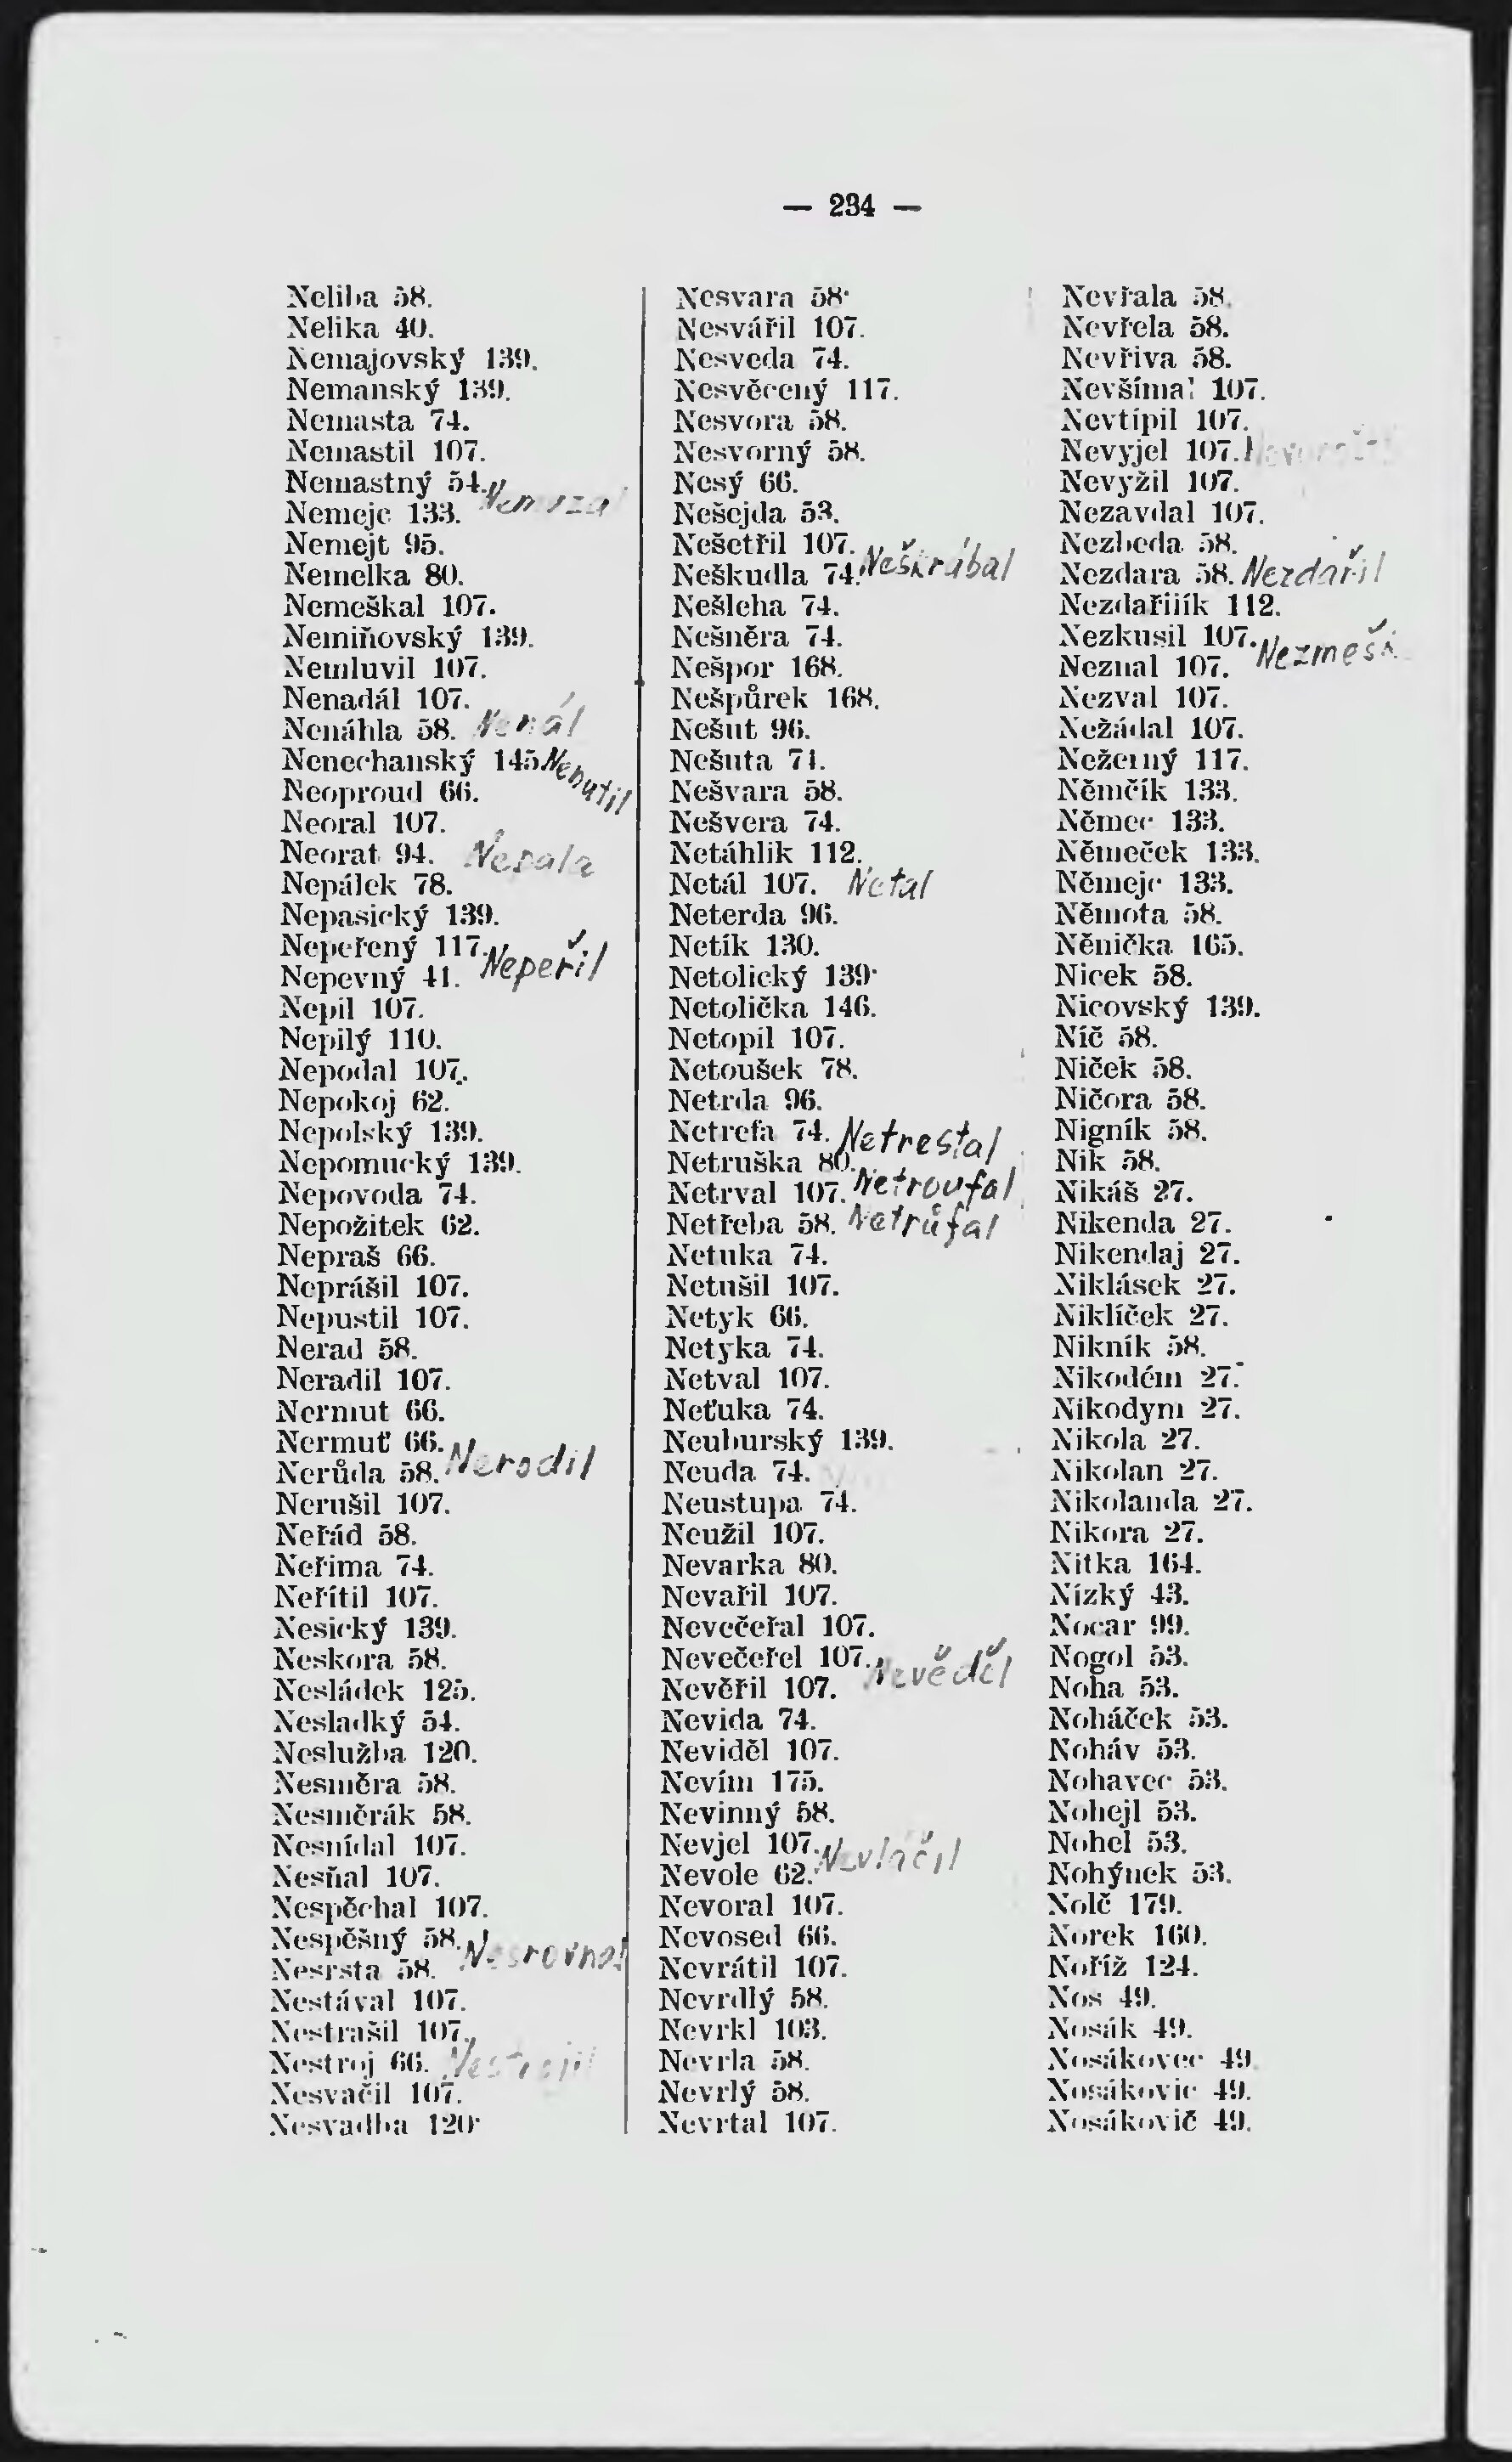 — 234 —
Neliba 58.
Nelika 40.
Nemajovský 139.
Nemanský 139.
Nemasta 74.
Nemastil 107.
Nemastný 54.
Nemeje 133.
Nemejt 95.
Nemelka 80.
Nemeškal 107.
Nemiňovský 139.
Nemluvil 107.
Nenadál 107.
Nenáhla 58. Nenál
Nenechanský 145 Nenutil
Neoproud 66.
Neoral 107.
Neorat 94. Nepala
Nepálek 78.
Nepasický 139.
Nepeřený 117. Nepeřil
Nepevný 41.
Nepil 107.
Nepilý 110.
Nepodal 107.
Nepokoj 62.
Nepolský 139.
Nepomucký 139.
Nepovoda 74.
Nepožitek 62.
Nepraš 66.
Neprášil 107.
Nepustil 107.
Nerad 58.
Neradil 107.
Nermut 66.
Nermuť 66. Nerodil
Nerůda 58.
Nerušil 107.
Neřád 58.
Neřima 74.
Neřítil 107.
Nesický 139.
Neskora 58.
Nesládek 125.
Nesladký 54.
Neslužba 120.
Nesměra 58.
Nesměrák 58.
Nesnídal 107.
Nesňal 107.
Nespěchal 107.
Nespěšný 58. Nesrovnal
Nesrsta 58.
Nestával 107.
Nestrašil 107.
Nestroj 66. Nestrojil
Nesvačil 107.
Nesvadba 120·
Nesvara 58·
Nesvářil 107.
Nesveda 74.
Nesvěcený 117.
Nesvora 58.
Nesvorný 58.
Nesý 66.
Nešejda 53.
Nešetřil 107.
Neškudla 74. Neškrábal
Nešleha 74.
Nešněra 74.
Nešpor 168.
Nešpůrek 168.
Nešut 96.
Nešuta 74.
Nešvara 58.
Nešvera 74.
Netáhlik 112.
Netál 107. Netal
Neterda 96.
Netík 130.
Netolický 139·
Netolička 146.
Netopil 107.
Netoušek 78.
Netrda 96.
Netrefa 74. Netrestal
Netruška 80.
Netrval 107. Netroufal
Netřeba 58. Netrůfal
Netuka 74.
Netušil 107.
Netyk 66.
Netyka 74.
Netval 107.
Neťuka 74.
Neuburský 139.
Neuda 74.
Neustupa 74.
Neužil 107.
Nevarka 80.
Nevařil 107.
Nevečeřal 107.
Nevečeřel 107. Nevěděl
Nevěřil 107.
Nevida 74.
Neviděl 107.
Nevím 175.
Nevinný 58.
Nevjel 107. Nevláčil
Nevole 62.
Nevoral 107.
Nevosed 66.
Nevrátil 107.
Nevrdlý 58.
Nevrkl 103.
Nevrla 58.
Nevrlý 58.
Nevrtal 107.
Nevřala 58.
Nevřela 58.
Nevřiva 58.
Nevšímal 107.
Nevtípil 107.
Nevyjel 107.
Nevyžil 107.
Nezavdal 107.
Nezbeda 58.
Nezdara 58. Nezdařil
Nezdařilík 112.
Nezkusil 107.
Neznal 107.
Nezval 107.
Nežádal 107.
Nežerný 117.
Němčík 133.
Němec 133.
Němeček 133.
Němejc 133.
Němota 58.
Něnička 165.
Nicek 58.
Nicovský 139.
Níč 58.
Niček 58.
Ničora 58.
Nigník 58.
Nik 58.
Nikáš 27.
Nikenda 27.
Nikendaj 27.
Niklásek 27.
Niklíček 27.
Nikník 58.
Nikodém 27.
Nikodym 27.
Nikola 27.
Nikolan 27.
Nikolanda 27.
Nikora 27.
Nitka 164.
Nízký 43.
Nocar 99.
Nogol 53.
Noha 53.
Noháček 53.
Noháv 53.
Nohavec 53.
Nohejl 53.
Nohel 53.
Nohýnek 53.
Nolč 179.
Norek 160.
Noříž 124.
Nos 49.
Nosák 49.
Nosákovec 49.
Nosákovic 49.
Nosákovič 49.